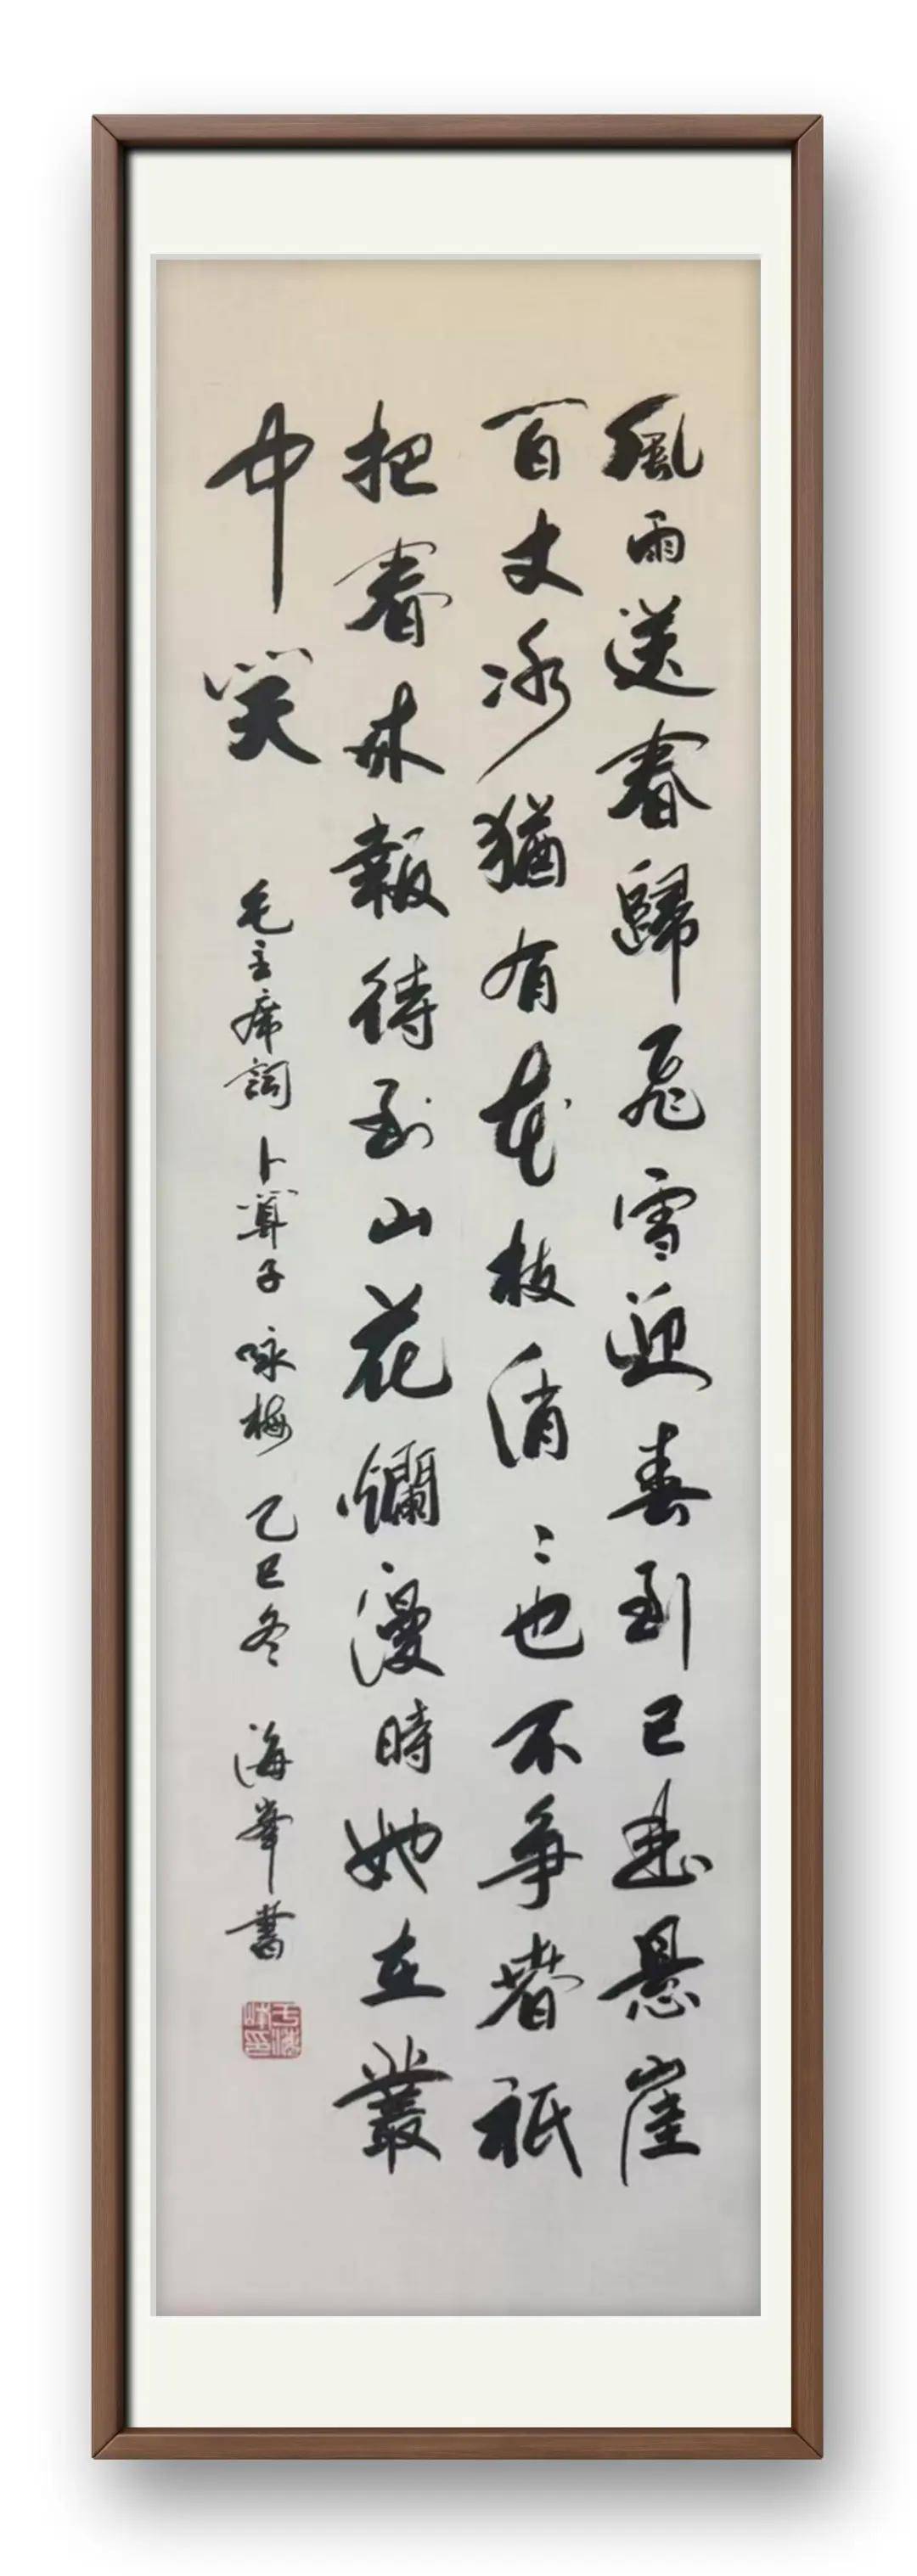 風雨送春歸飛雪迎春到已是悬崖
百丈冰猶有花枝俏〻也不爭春祇
把春來報待到山花爛漫時她在叢
中笑 毛主席詞 卜算子 咏梅 乙巳冬 海峯書